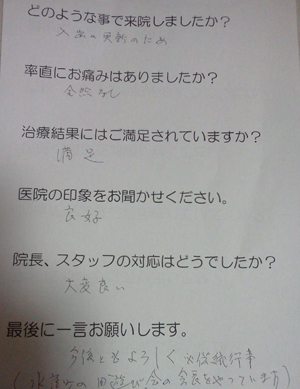 どのような事で来院しましたか?
入歯の更新のため
率直にお痛みはありましたか?
全然なし
治療結果にはご満足されていますか?
満足
医院の印象をお聞かせください。
良好
院長、スタッフの対応はどうでしたか?
大変良い
最後に一言お願いします。
今後ともよろしく
の会長をやっています)